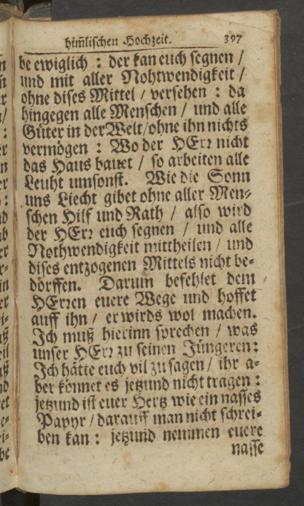 him̃lischen Hochzeit. 397
be ewiglich : der kan euch segnen /
und mit aller Nohtwendigkeit /
ohne dises Mittel / versehen : da
hingegen alle Menschen / und alle
Güter in der Welt / ohne ihn nichts
vermögen : Wo der HErꝛ nicht
das Haus bauet / so arbeiten alle
Leuht umsonst. Wie die Sonn
uns Liecht gibet ohne aller Men-
schen Hilf und Rath / also wird
der HErꝛ euch segnen / und alle
Nothwendigkeit mittheilen / und
dises entzogenen Mittels nicht be-
dörffen. Darum befehlet dem
HErꝛen euere Wege und hoffet
auff ihn / er wirds wol machen.
Ich muß hierinn sprechen / was
unser HErꝛ zu seinen Jüngeren:
Ich hätte euch vil zu sagen / ihr a-
ber könnet es jetzund nicht tragen :
jetzund ist euer Hertz wie ein nasses
Papyr / darauff man nicht schrei-
ben kan : jetzund nemmen euere
nasse